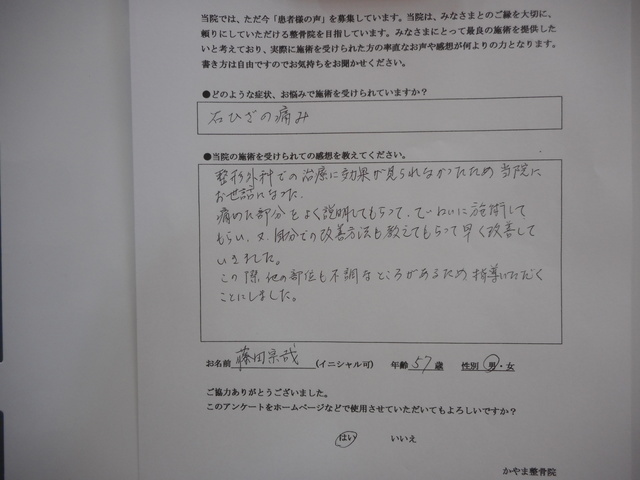 当院では、ただ今「患者様の声」を募集しています。当院は、みなさまとのご縁を大切に、
頼りにしていただける整骨院を目指しています。みなさまにとって最良の施術を提供した
いと考えており、実際に施術を受けられた方の率直なお声や感想が何よりの力となります。
書き方は自由ですのでお気持ちをお聞かせください。
●どのような症状、お悩みで施術を受けられていますか？
右ひざの痛み
●当院の施術を受けられての感想を教えてください。
整形外科での治療に効果が見られなかったため当院に
お世話になった.
痛めた部分をよく説明してもらって、ていねいに施術して
もらい、又、自分での改善方法も教えてもらって早く改善して
いきました。
この際、他の部位も不調なところがあるため指導いただく
ことにしました。
お名前 藤田宗哉 (イニシャル可) 年齢 57 歳 性別 男・女
ご協力ありがとうございました。
このアンケートをホームページなどで使用させていただいてもよろしいですか？
はい いいえ
かやま整骨院